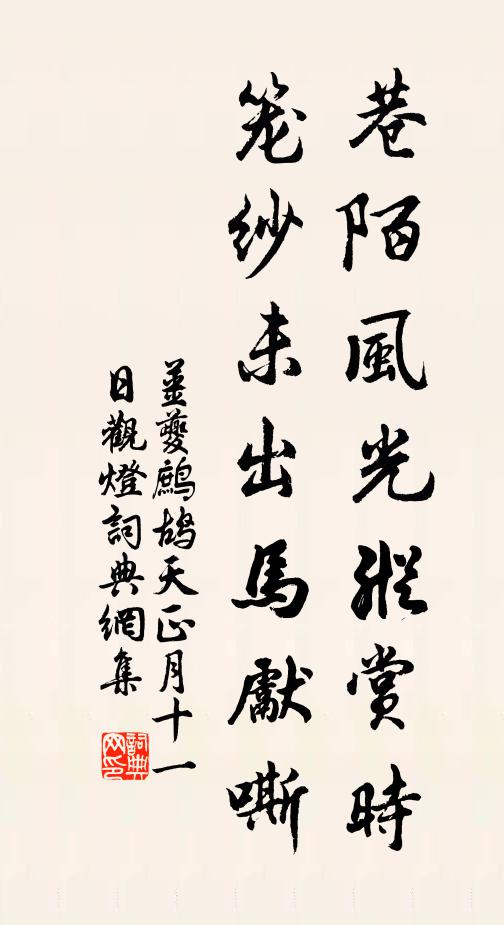 巷陌風光縱賞時
笼紗未出馬獻嘶
薑夔鷓鴣天正月十一
日觀燈詞典網集
詞典
网印